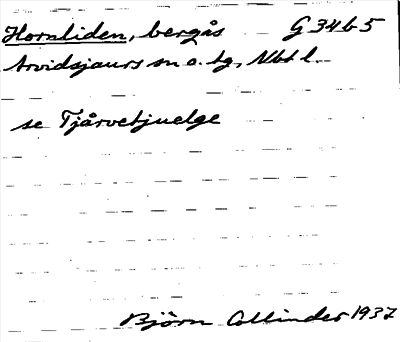 Hornliden, bergås G 34 b 5
Arvidsjaurs sn o. tg, Nbt l.
se Tjårvetjuelge
Björn Collinder 1937